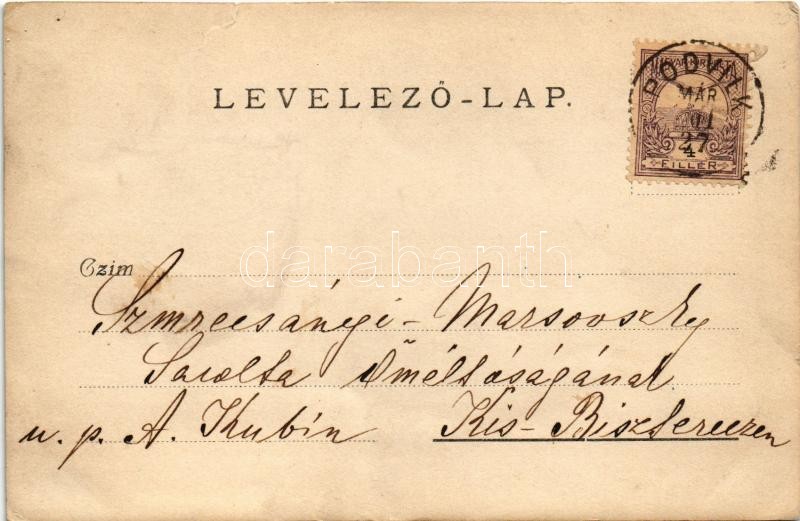 LEVELEZŐ-LAP.
PODVILK
MÁR
01
27
4
FILLÉR
darabanth
Czim
Szmrecsányi-Marsovszky
Sarolta Őméltóságának
u. p. A. Kubin Kis-Biszterecen